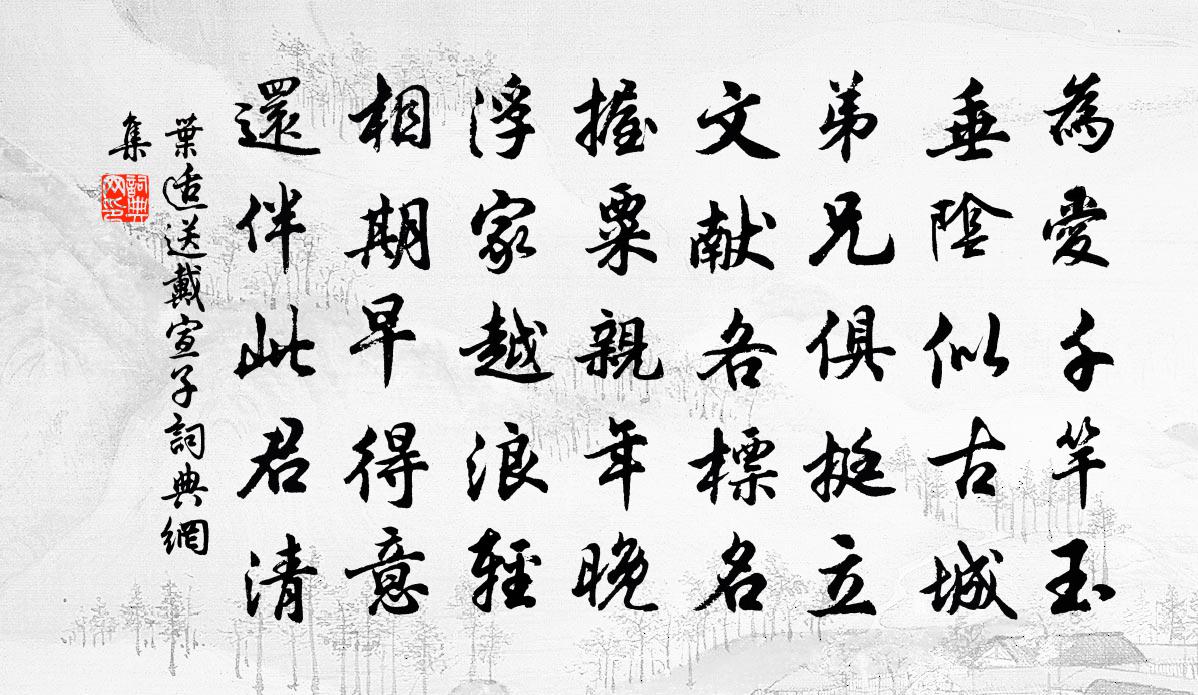 為愛千竿玉
垂陰似古城
弟兄俱挺立
文献各標名
握粟親年晚
浮家越浪輕
相期早得意
還伴此君清
葉适送戴宣子詞典網
集
詞典
网印